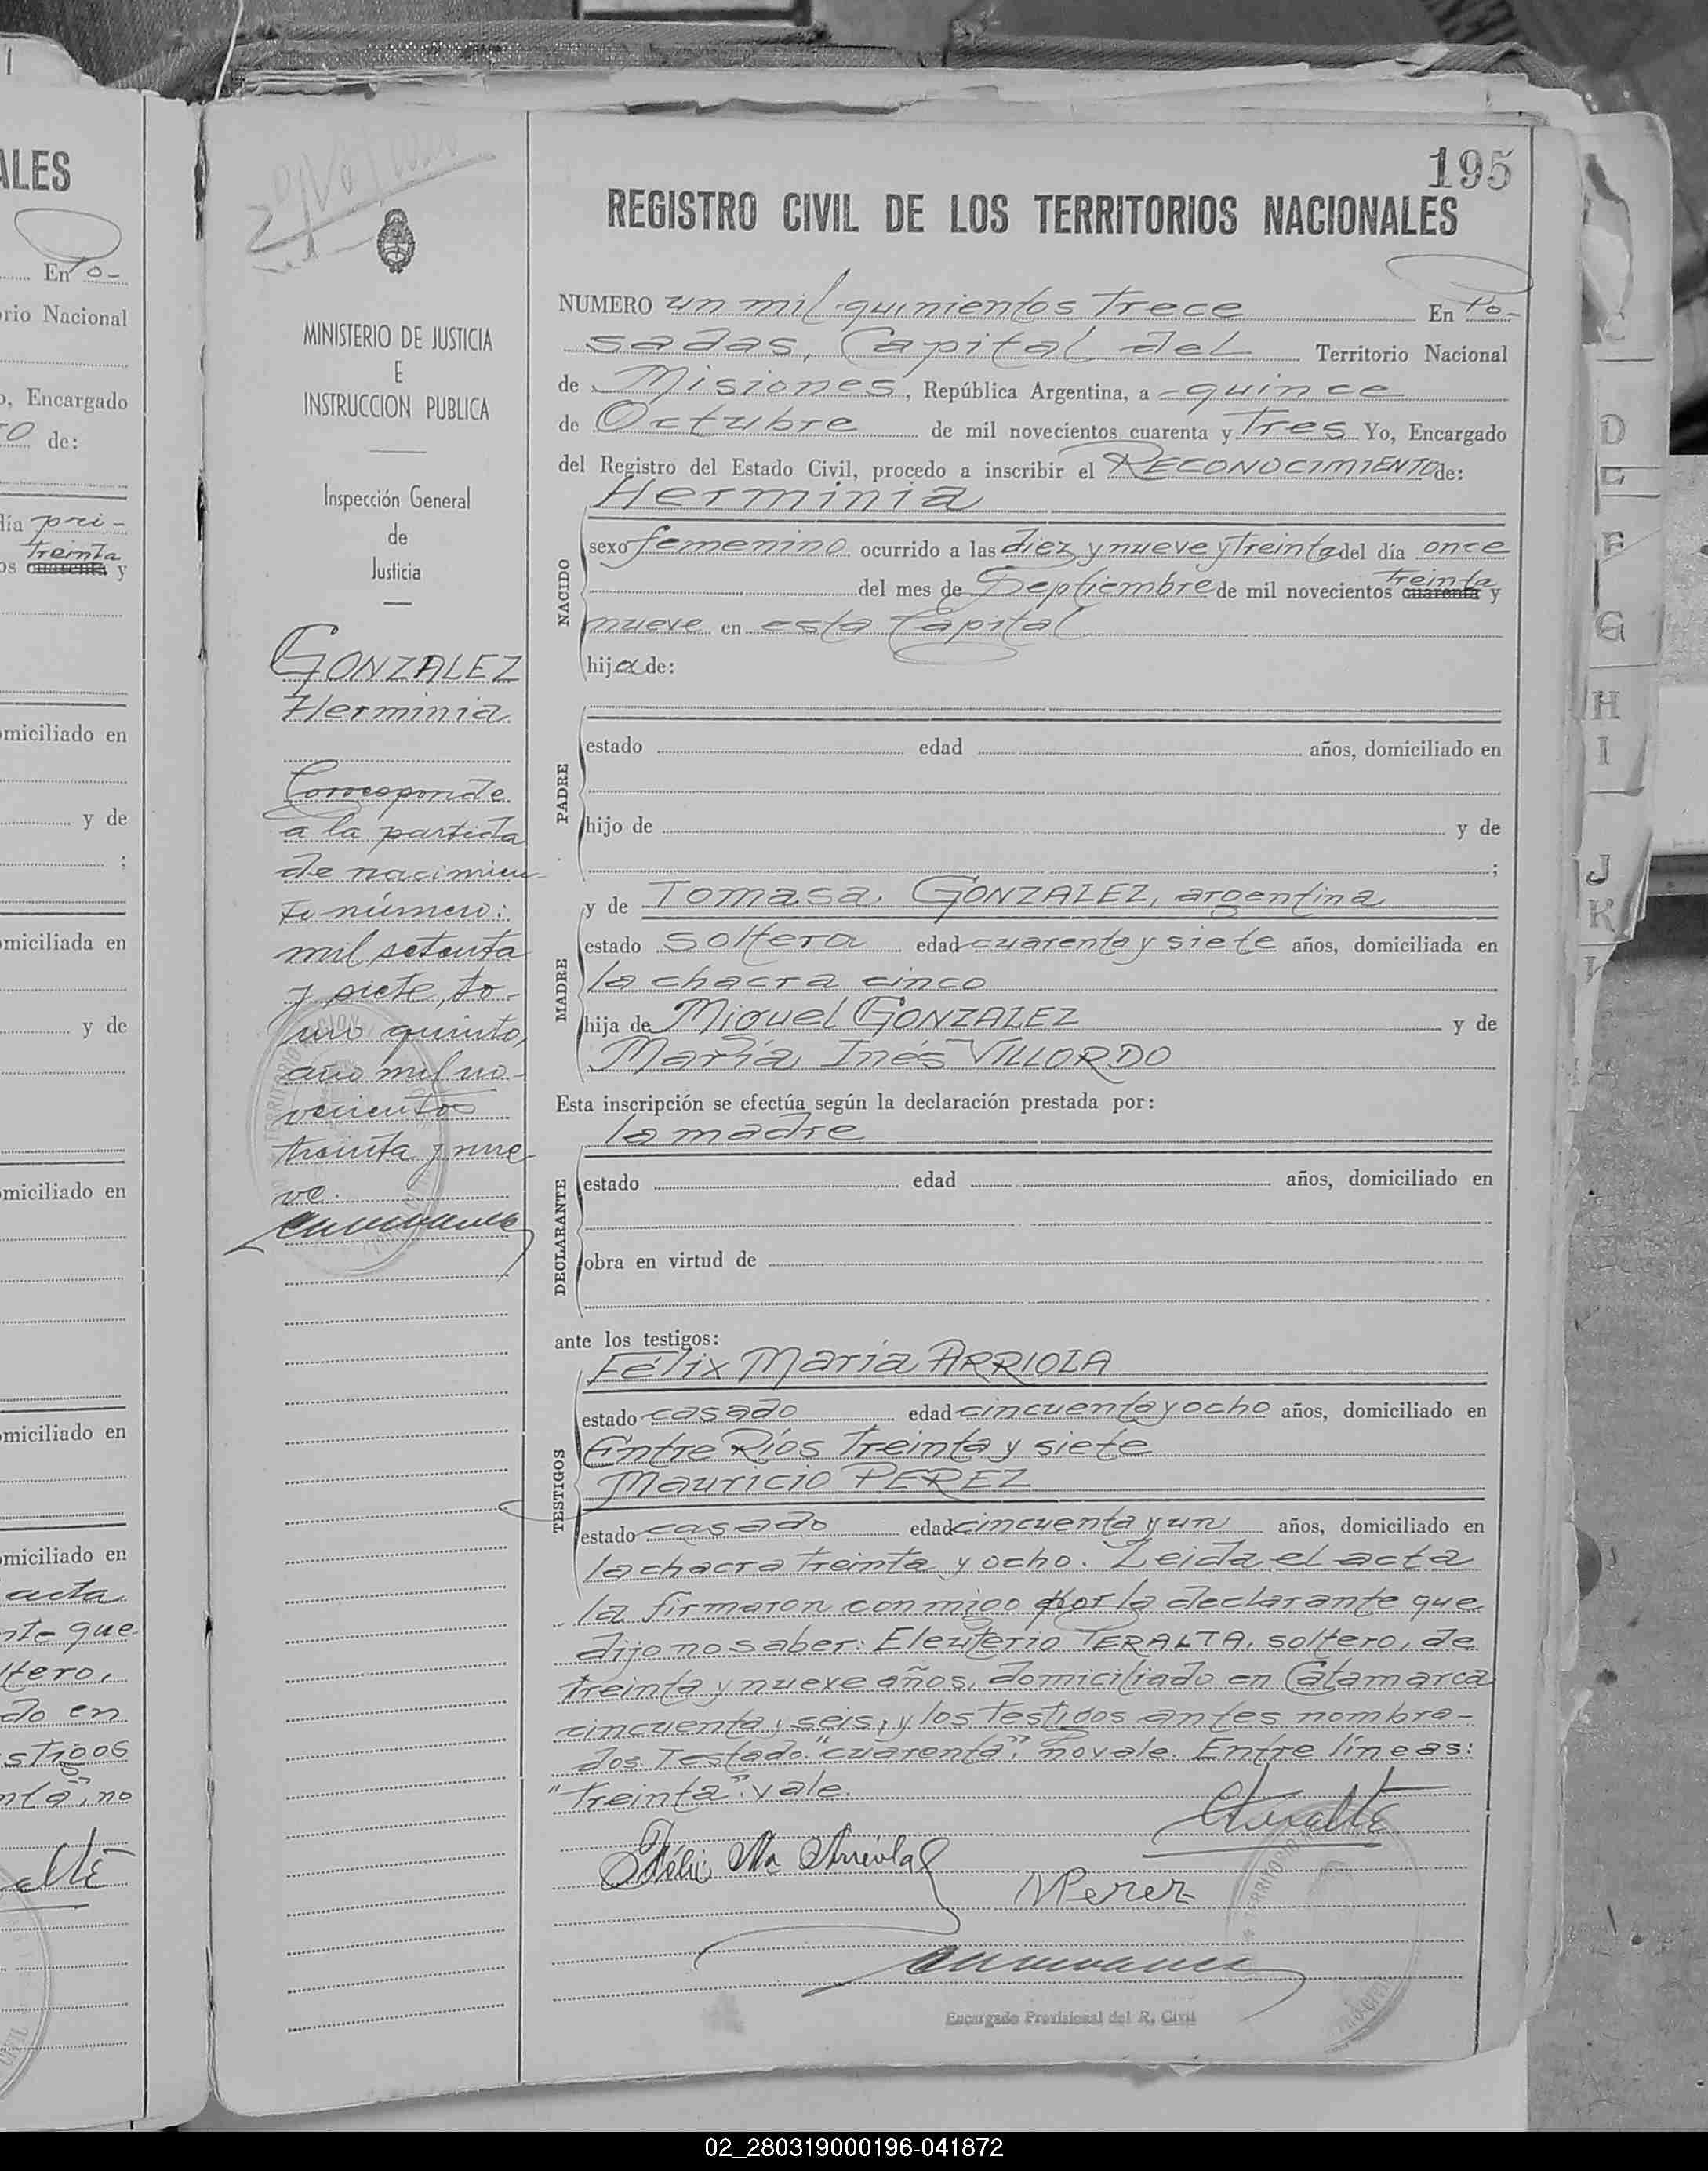 195
REGISTRO CIVIL DE LOS TERRITORIOS NACIONALES
NUMERO un mil quinientos trece En Po-
sadas, Capital del Territorio Nacional
de Misiones, República Argentina, a quince
de Octubre de mil novecientos cuarenta y Tres Yo, Encargado
del Registro del Estado Civil, procedo a inscribir el RECONOCIMIENTO de:
Herminia
NACIDO
sexo femenino ocurrido a las diez y nueve y treinta del día once
del mes de Septiembre de mil novecientos cuarenta treinta y
nueve en esta Capital
hija de:
PADRE
estado edad años, domiciliado en
hijo de y de
;
y de Tomasa GONZALEZ, argentina
MADRE
estado soltera edad cuarenta y siete años, domiciliada en
la chacra cinco
hija de Miguel GONZALEZ y de
María Inés VILLORDO
Esta inscripción se efectúa según la declaración prestada por:
la madre
DECLARANTE
estado edad años, domiciliado en
obra en virtud de
ante los testigos:
Félix María ARRIOLA
TESTIGOS
estado casado edad cincuenta y ocho años, domiciliado en
Entre Ríos treinta y siete
Mauricio PEREZ
estado casado edad cincuenta y un años, domiciliado en
la chacra treinta y ocho. Leida el acta
la firmaron conmigo por la declarante que
dijo no saber: Eleuterio TERALTA, soltero, de
treinta y nueve años, domiciliado en Catamarca
cincuenta y seis; y los testigos antes nombra-
dos. Testado: "cuarenta": no vale. Entre líneas:
"treinta": vale.
Félix Ma Arriola
MPerez
Encargado Provisional del R. Civil
MINISTERIO DE JUSTICIA
E
INSTRUCCION PUBLICA
Inspección General
de
Justicia
GONZALEZ
Herminia
Corresponde
a la partida
de nacimien-
to número:
mil setenta
y siete, to-
mo quinto,
año mil no-
vecientos
treinta y nue-
ve.
ALES
En Po-
rio Nacional
o, Encargado
de:
día pri-
treinta
os cuarenta y
omiciliado en
y de
;
omiciliada en
y de
omiciliado en
omiciliado en
omiciliado en
acta
nte que
ltero,
do en
stigos
nta", no
C
D
E
F
G
H
I
J
K
02_280319000196-041872